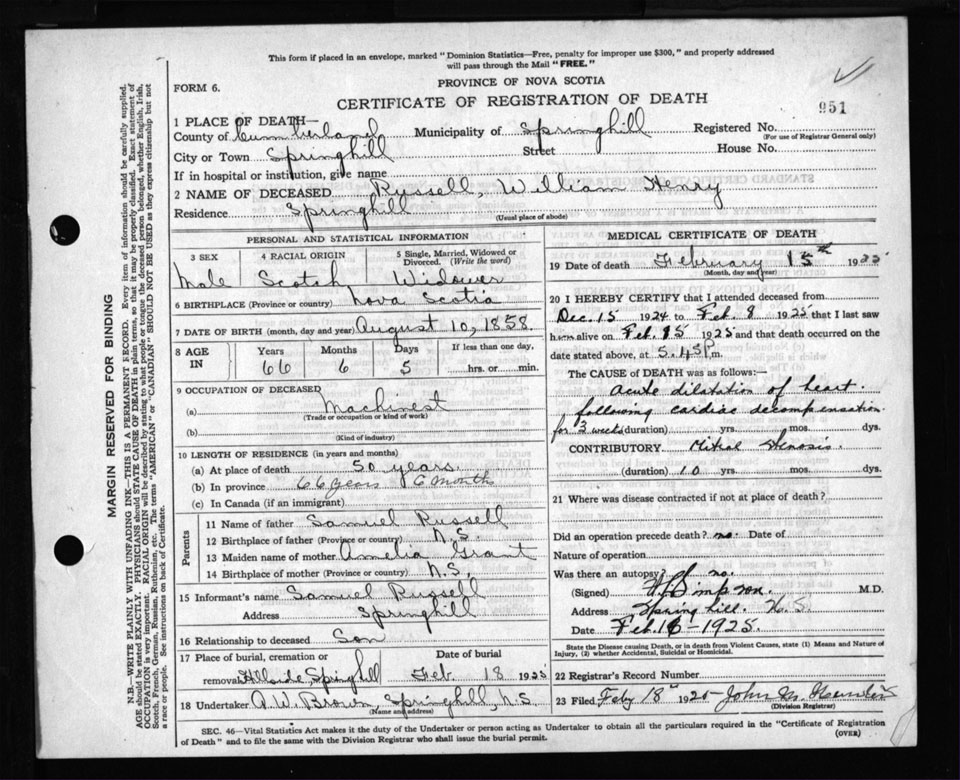 This form if placed in an envelope, marked "Dominion Statistics—Free, penalty for improper use $300," and properly addressed
will pass through the Mail "FREE."
FORM 6.
PROVINCE OF NOVA SCOTIA
CERTIFICATE OF REGISTRATION OF DEATH
951
1 PLACE OF DEATH—
County of Cumberland Municipality of Springhill Registered No.
(For use of Registrar General only)
City or Town Springhill Street House No.
If in hospital or institution, give name
2 NAME OF DECEASED Russell, William Henry
Residence Springhill
(Usual place of abode)
PERSONAL AND STATISTICAL INFORMATION
3 SEX 4 RACIAL ORIGIN 5 Single, Married, Widowed or Divorced. (Write the word)
Male Scotch Widower
6 BIRTHPLACE (Province or country) Nova Scotia
7 DATE OF BIRTH (month, day and year) August 10, 1858.
8 AGE IN Years Months Days If less than one day,
66 6 5 hrs. or min.
9 OCCUPATION OF DECEASED
(a) Machinest
(Trade or occupation or kind of work)
(b)
(Kind of industry)
10 LENGTH OF RESIDENCE (in years and months)
(a) At place of death 50 years
(b) In province 66 years 6 months
(c) In Canada (if an immigrant)
Parents
11 Name of father Samuel Russell
12 Birthplace of father (Province or country) N.S.
13 Maiden name of mother Amelia Grant
14 Birthplace of mother (Province or country) N.S.
15 Informant's name Samuel Russell
Address Springhill
16 Relationship to deceased Son
17 Place of burial, cremation or removal Hillside Springhill Date of burial Feb 18 1925
18 Undertaker A.W. Brown, Springhill, N.S.
(Name and address)
MEDICAL CERTIFICATE OF DEATH
19 Date of death February 15th 1925
(Month, day and year)
20 I HEREBY CERTIFY that I attended deceased from
Dec. 15 1924 to Feb. 8 1925 that I last saw
him alive on Feb. 15 1925 and that death occurred on the
date stated above, at 5.45 P.m.
The CAUSE of DEATH was as follows:—
Acute dilatation of heart
following cardiac decompensation
for 3 weeks (duration) yrs. mos. dys.
CONTRIBUTORY Mitral Stenosis
(duration) 10 yrs. mos. dys.
21 Where was disease contracted if not at place of death?
Did an operation precede death? no. Date of
Nature of operation
Was there an autopsy? no.
(Signed) Simpson. M.D.
Address Springhill. N.S.
Date Feb. 16-1925.
State the Disease causing Death, or in death from Violent Causes, state (1) Means and Nature of
Injury, (2) whether Accidental, Suicidal or Homicidal.
22 Registrar's Record Number
23 Filed Feby 18th 1925 John M.
(Division Registrar)
SEC. 46—Vital Statistics Act makes it the duty of the Undertaker or person acting as Undertaker to obtain all the particulars required in the "Certificate of Registration
of Death" and to file the same with the Division Registrar who shall issue the burial permit.
(OVER)
MARGIN RESERVED FOR BINDING
N.B.—WRITE PLAINLY WITH UNFADING INK—THIS IS A PERMANENT RECORD. Every item of information should be carefully supplied.
AGE should be stated EXACTLY. PHYSICIANS should STATE CAUSE OF DEATH in plain terms, so that it may be properly classified. Exact statement of
OCCUPATION is very important. RACIAL ORIGIN will be described by stating to what people or tongue the deceased person belonged, whether English, Irish,
Scotch, French, German, Russian, Ruthenian, etc. The terms "AMERICAN" or "CANADIAN" SHOULD NOT BE USED as they express citizenship but not
a race or people. See instructions on back of Certificate.